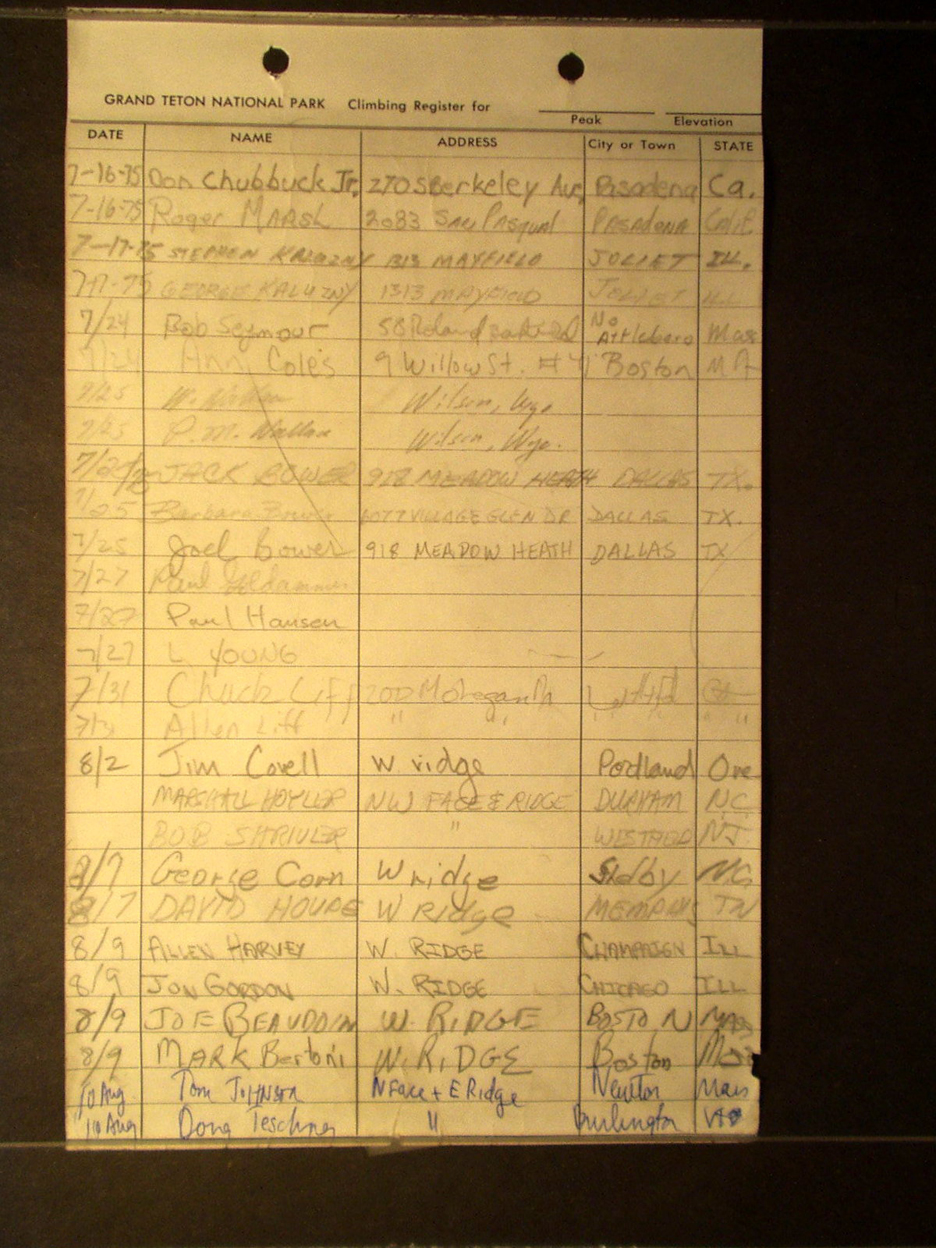 GRAND TETON NATIONAL PARK Climbing Register for
Peak Elevation
DATE NAME ADDRESS City or Town STATE
7-16-75 Don Chubbuck Jr. 270 S Berkeley Ave Pasadena Ca.
7-16-75 Roger Marsh 2083 San Pasqual PASADENA Calif.
7-17-75 STEPHEN KALUZNY 1313 MAYFIELD JOLIET ILL.
7-17-75 GEORGE KALUZNY 1313 MAYFIELD JOLIET ILL
7/24 Bob Seymour No Attleboro Mass
7/24 Ann Coles 9 Willow St. #41 Boston MA
7/25 W. Wilson, Wyo
7/25 P. M. Wallace Wilson, Wyo.
JACK BOWER 918 MEADOW HEATH DALLAS TX.
7/25 Barbara Bower 6077 VILLAGE GLEN DR DALLAS TX.
7/25 Joel Bower 918 MEADOW HEATH DALLAS TX
7/27 Paul
7/27 Paul Hansen
7/27 L. YOUNG
7/31 Chuck Liff 200 Mohegan
7/31 Allen Liff " " " " "
8/2 Jim Covell W. ridge Portland Ore
MARSHALL NW FACE & RIDGE DURHAM N.C.
BOB SHRIVER " WESTFIELD NJ
8/7 George Corn W ridge Shelby NC
8/7 DAVID HOUPE W Ridge MEMPHIS TN
8/9 ALLEN HARVEY W. RIDGE CHAMPAIGN ILL
8/9 JON GORDON W. RIDGE CHICAGO ILL
8/9 JOE BEAUDOIN W. RIDGE BOSTON MAS
8/9 MARK Bertoni W. RIDGE Boston Mass
10 Aug Tom JOHNSON N Face + E Ridge Newton Mass
10 Aug Doug Teschner " Burlington Vt